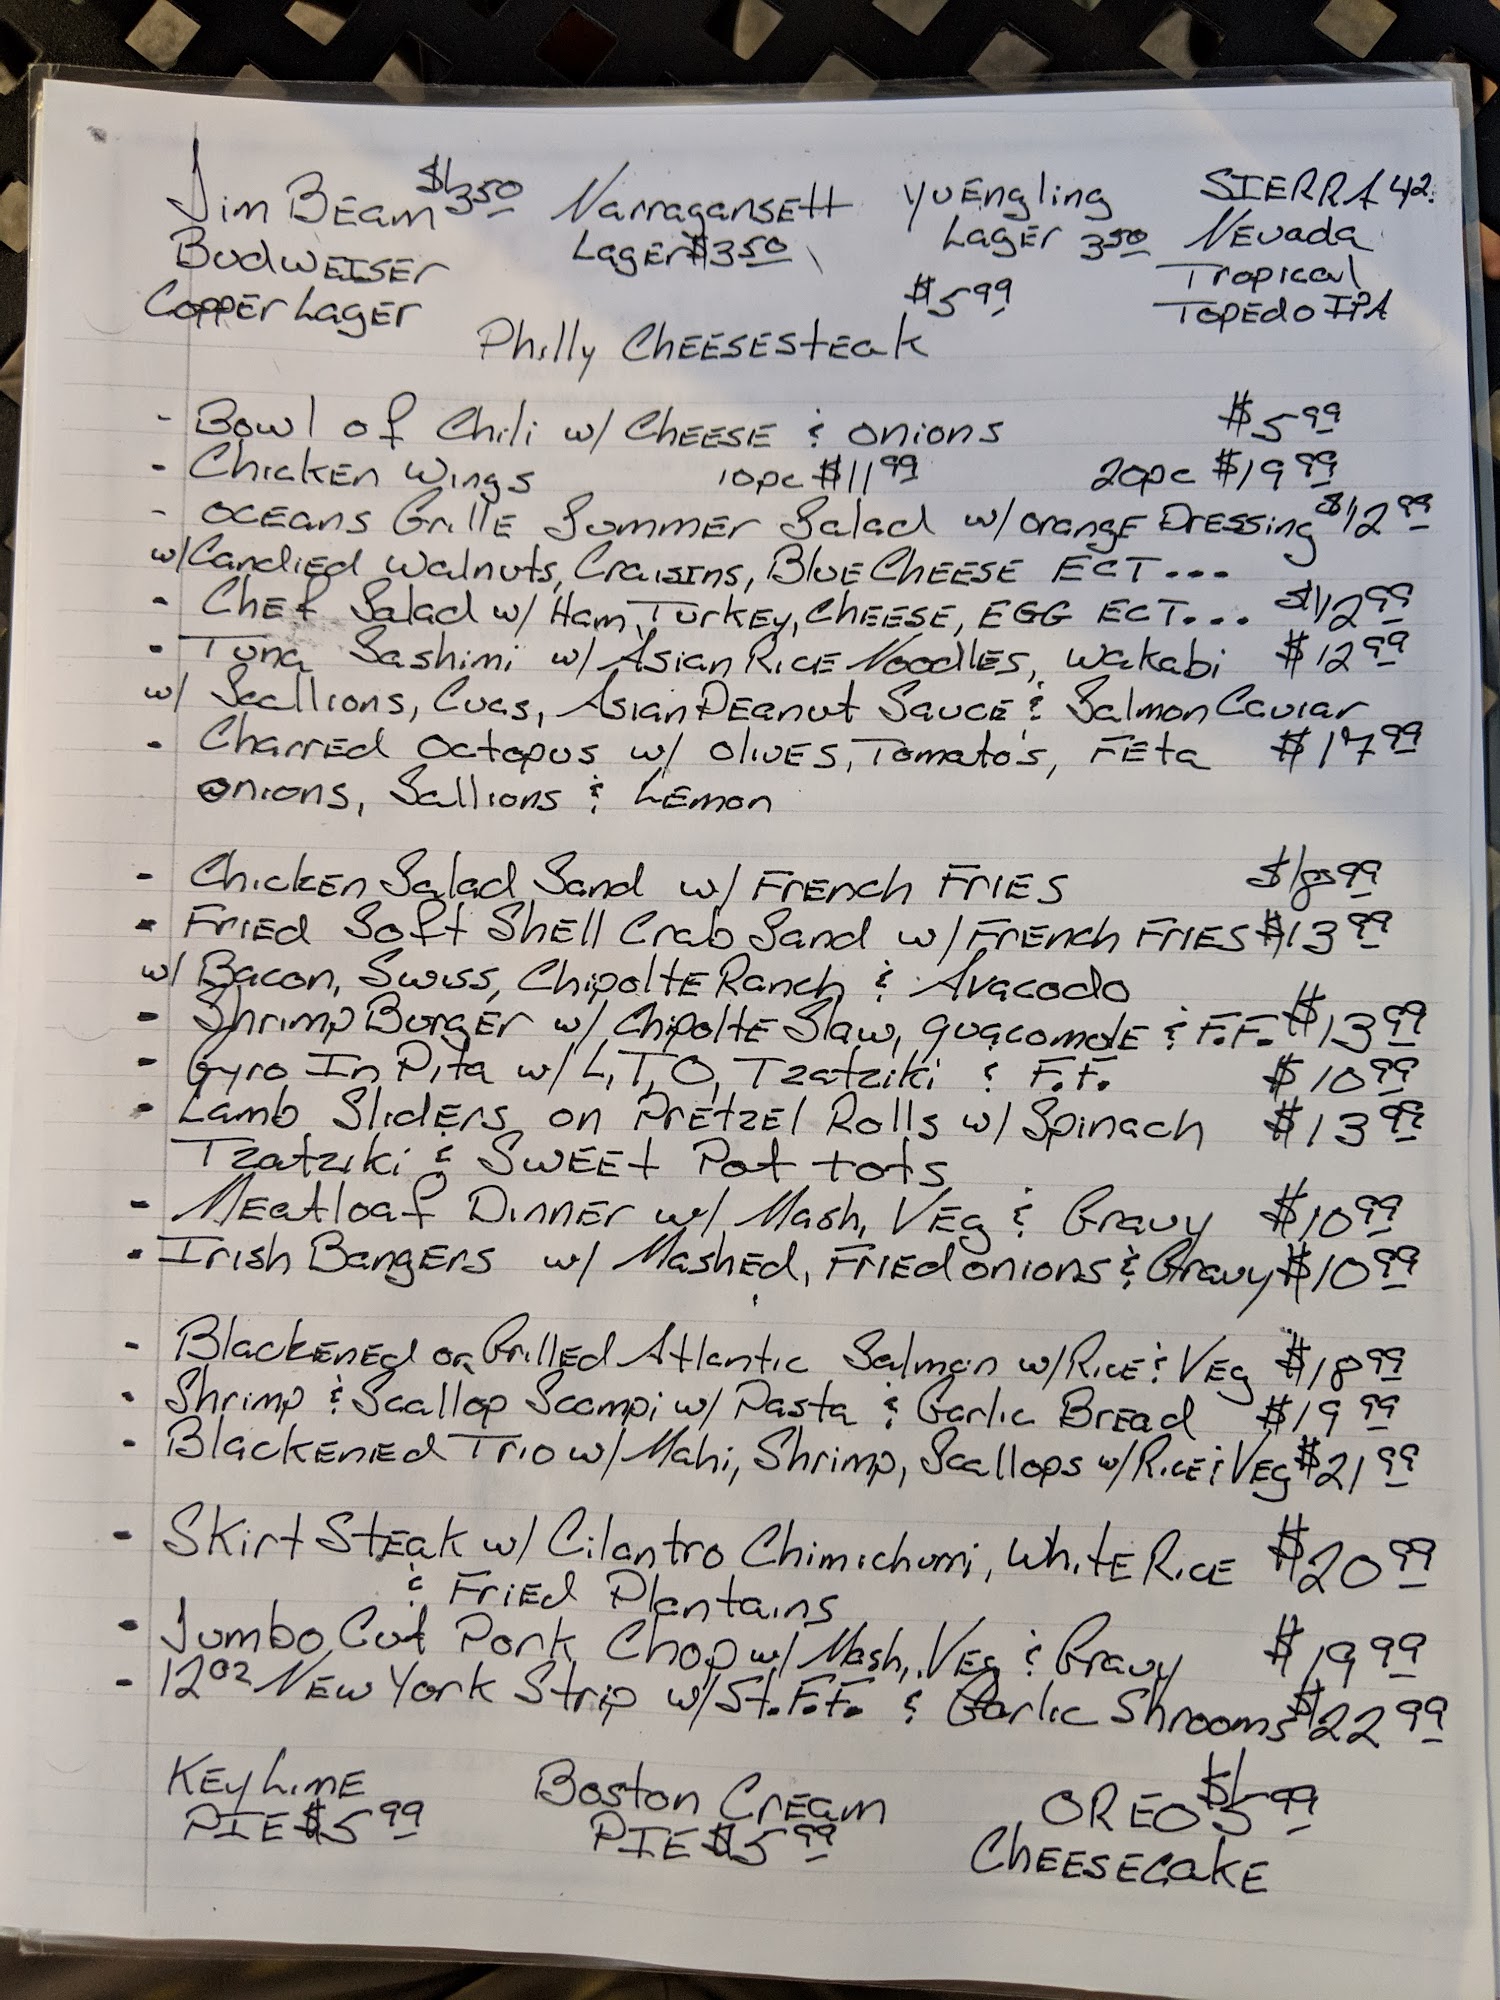 Jim BEam $3.50 NarragansEtt YuEngling SIERRA 42.
BudWEISER LagEr $3.50 LagEr 3.50 NEvada
CoppEr LagEr $5.99 Tropical
Philly CHEESESTEak TopEdo IPA
- Bowl of Chili w/ CHEESE & onions $5.99
- Chicken Wings 10pc $11.99 20pc $19.99
- OCEans GrillE SummEr Salad w/ orangE DrEssing $12.99
w/ CandiEd Walnuts, Craisins, BluE CHEESE ECT...
- ChEf Salad w/ Ham, TurkEy, CHEESE, EGG ECT... $12.99
- Tuna Sashimi w/ Asian RicE NoodlES, Wakabi $12.99
w/ Scallions, Cucs, Asian PEanut SaucE & Salmon Caviar
- CharrEd Octopus w/ OlivES, Tomato's, FEta $17.99
onions, Sallions & LEmon
- ChickEn Salad Sand w/ FrENCH FRIES
- FriEd Soft ShEll Crab Sand w/ FrENCH FRIES $13.99
w/ Bacon, Swiss, ChipoltE Ranch & Avacodo
- Shrimp BurgEr w/ ChipoltE Slaw, guacomolE & F.F. $13.99
- Gyro In Pita w/ L,T,O, Tzatziki & F.F. $10.99
- Lamb SlidErs on PrEtzEl Rolls w/ Spinach $13.99
Tzatziki & SWEEt Pot tots
- MEatloaf DinnEr w/ Mash, VEg & Gravy $10.99
- Irish BangErs w/ MashEd, FriEd onions & Gravy $10.99
- BlackEnEd or GrillEd Atlantic Salmon w/ RicE & VEg $18.99
- Shrimp & Scallop Scampi w/ Pasta & Garlic BrEad $19.99
- BlackEniEd Trio w/ Mahi, Shrimp, Scallops w/ RicE & VEg $21.99
- Skirt STEak w/ Cilantro Chimichurri, WhitE RicE $20.99
& FriEd Plantains
- Jumbo Cut Pork Chop w/ Mash, VEg & Gravy $19.99
- 12oz NEw York Strip w/ St. F.F. & Garlic Shrooms $22.99
KEy LimE Boston CrEam OREO $5.99
PIE $5.99 PIE $5.99 CHEESECakE